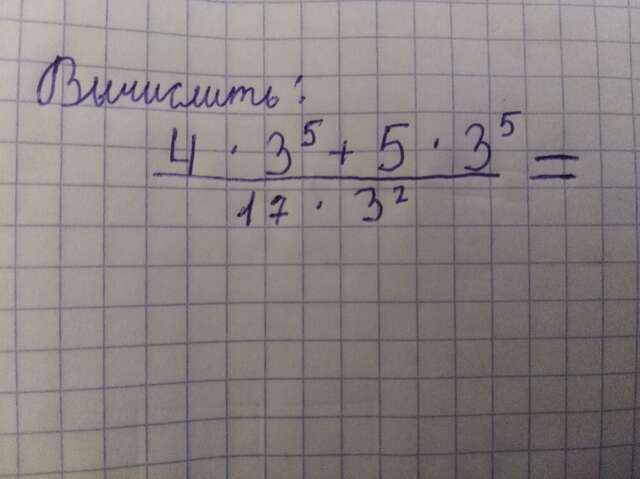 Вычислить:
4 · 3⁵ + 5 · 3⁵ =
17 · 3²